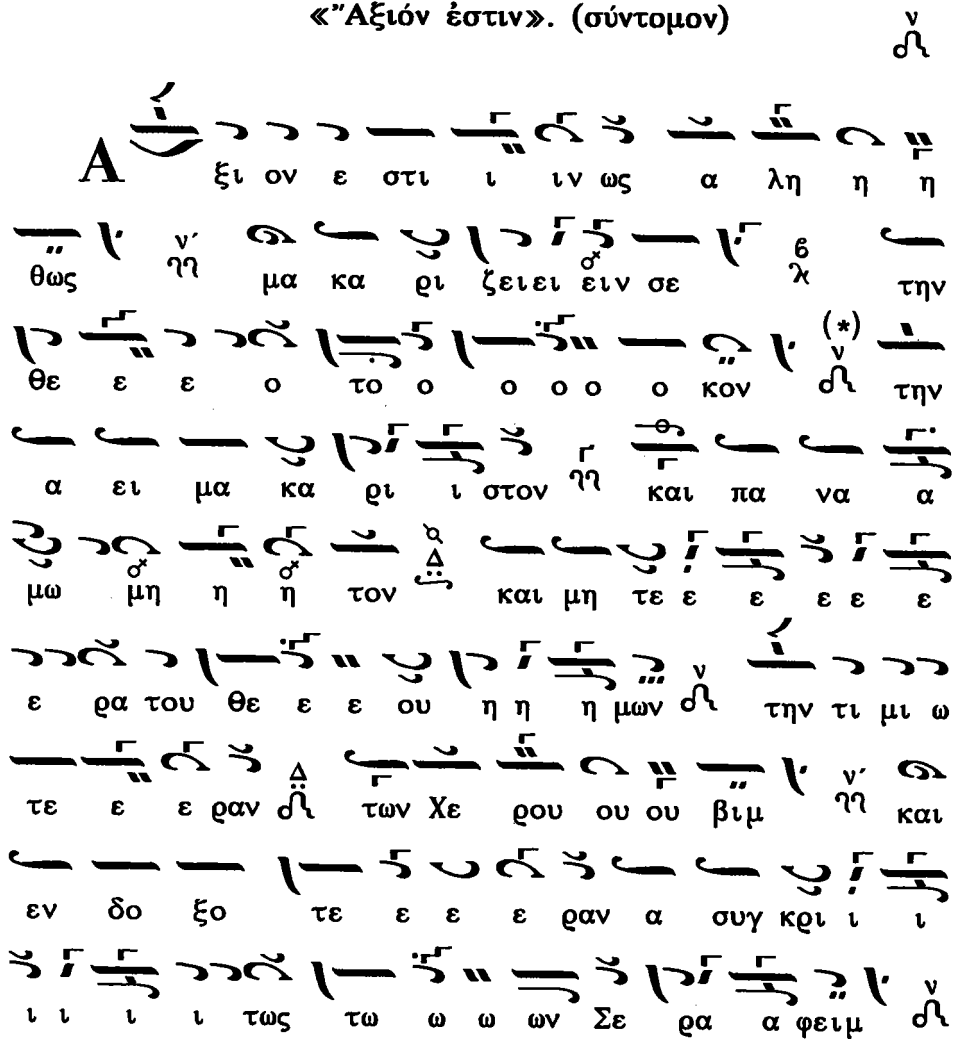 «Ἄξιόν ἐστιν». (σύντομον)
ν
Α ξι ον ε στι ι ιν ως α λη η η
θως ν´ ηη μα κα ρι ζει ει ειν σε β λ την
θε ε ε ο το ο ο ο ο ο κον (*) ν την
α ει μα κα ρι ι στον Γ ηη και πα να α
μω μη η η τον Δ και μη τε ε ε ε ε ε
ε ρα του θε ε ε ου η η η μων ν την τι μι ω
τε ε ε ραν Δ των Χε ρου ου ου βιμ ν´ ηη και
εν δο ξο τε ε ε ε ραν α συγ κρι ι ι
ι ι ι ι τως τω ω ω ων Σε ρα α φειμ ν